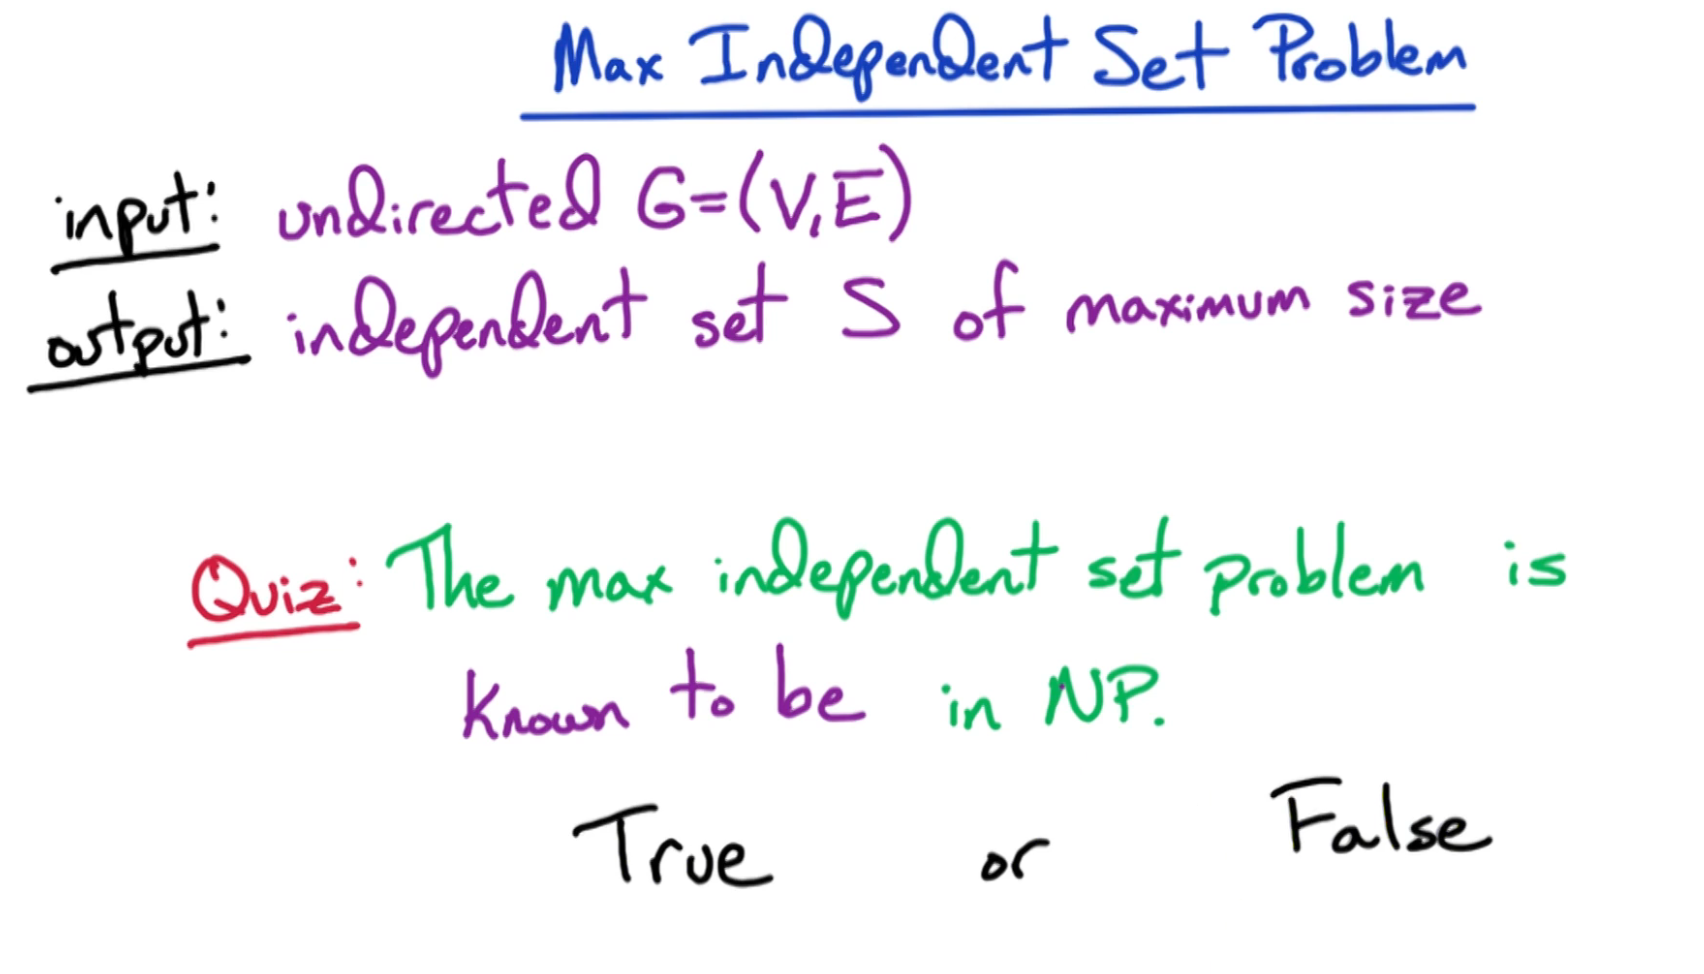 Max Independent Set Problem
input: undirected G=(V,E)
output: independent set S of maximum size
Quiz: The max independent set problem is
known to be in NP.
True or False